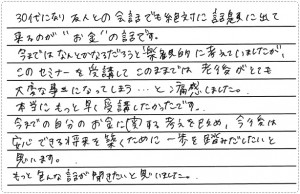 30代になり友人との会話でも絶対に話題に出て
来るのが"お金"の話です。
今まではなんとかなるだろうと楽観的に考えていましたが、
このセミナーを受講してこのままでは老後がとても
大変な事になってしまう…と痛感しました。
本当にもっと早く受講したかったです。
今までの自分のお金に対する考えを改め、今後は
安心できる将来を築くために一歩を踏みだしたいと
思います。
もっと色んな話が聞きたいと思いました。